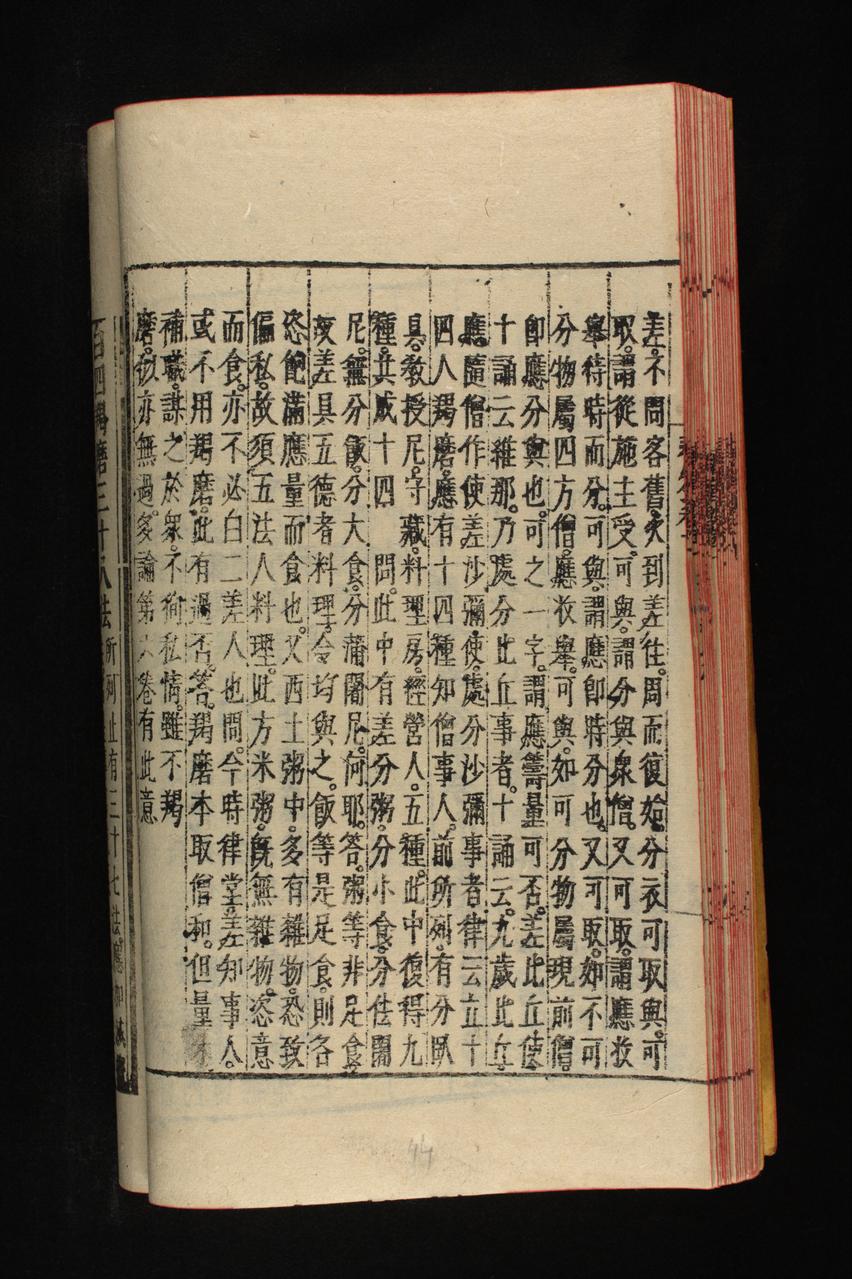 差。不問客舊。次到差往。周而復始分衣可取與。可
取。謂從施主受。可與。謂分與衆僧。又可取。謂應收
舉。待時而分。可與。謂應即時分也。又可取。如不可
分物屬四方僧。應收舉。可與。如可分物屬現前僧
即應分與也。可之一字。謂應籌量可否。差比丘使
十誦云維那。乃處分比丘事者。十誦云。九歲比丘
應隨僧作使差沙彌使。處分沙彌事者律云立十
四人羯磨。應有十四種知僧事人。前所列。有分臥
具。教授尼。守藏。料理房。經營人。五種。此中復得九
種。共成十四　問。此中有差分粥。分小食。分佉闍
尼。無分飯。分大食。分蒲闍尼。何耶。答。粥等非足食
故差具五德者料理。令均與之。飯等是足食。則各
恣飽滿應量而食也。又西土粥中。多有雜物。恐致
偏私。故須五法人料理。此方米粥。既無雜物。恣意
而食。亦不必白二差人也問。今時律堂。差知事人。
或不用羯磨。此有過否。答。羯磨本取僧和。但量
補職。謀之於衆。不徇私情。雖不羯
磨。似亦無過。多論第 卷有此意
四羯磨三十八法所列止有三十七法應